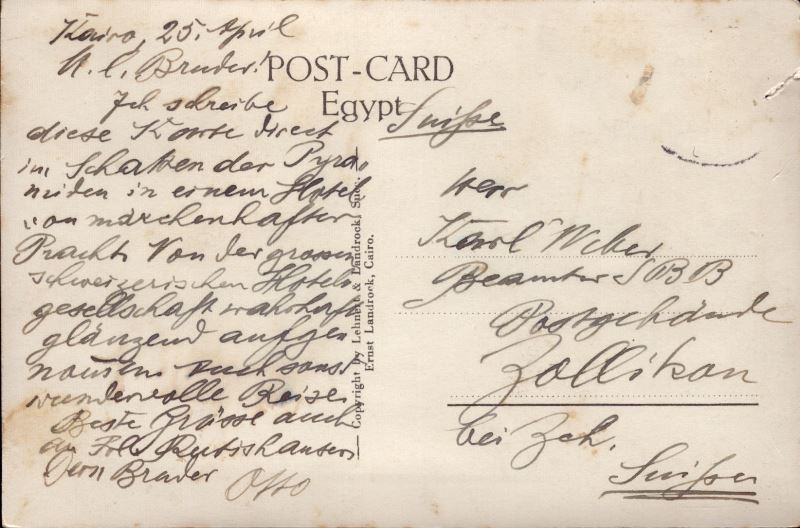 Kairo, 25. April
M. l. Bruder!
Ich schreibe
diese Karte direct
im Schatten der Pyra-
miden in einem Hotel
von märchenhafter
Pracht. Von der grossen
schweizerischen Hotel-
gesellschaft wahrhaft
glänzend aufge-
nommen. Auch sonst
wundervolle Reise.
Beste Grüsse auch
an Frl. Rutishauser
Dein Bruder
Otto
POST-CARD
Egypt
Copyright by Lehnert & Landrock, Suc.
Ernst Landrock, Cairo.
Suisse
Herr
Karl Weber
Beamter SBB
Postgebäude
Zollikon
bei Zch.
Suisse